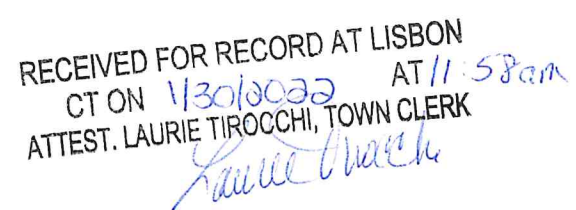 RECEIVED FOR RECORD AT LISBON
CT ON 1/30/2022 AT 11:58am
ATTEST. LAURIE TIROCCHI, TOWN CLERK
Laurie Tirocchi